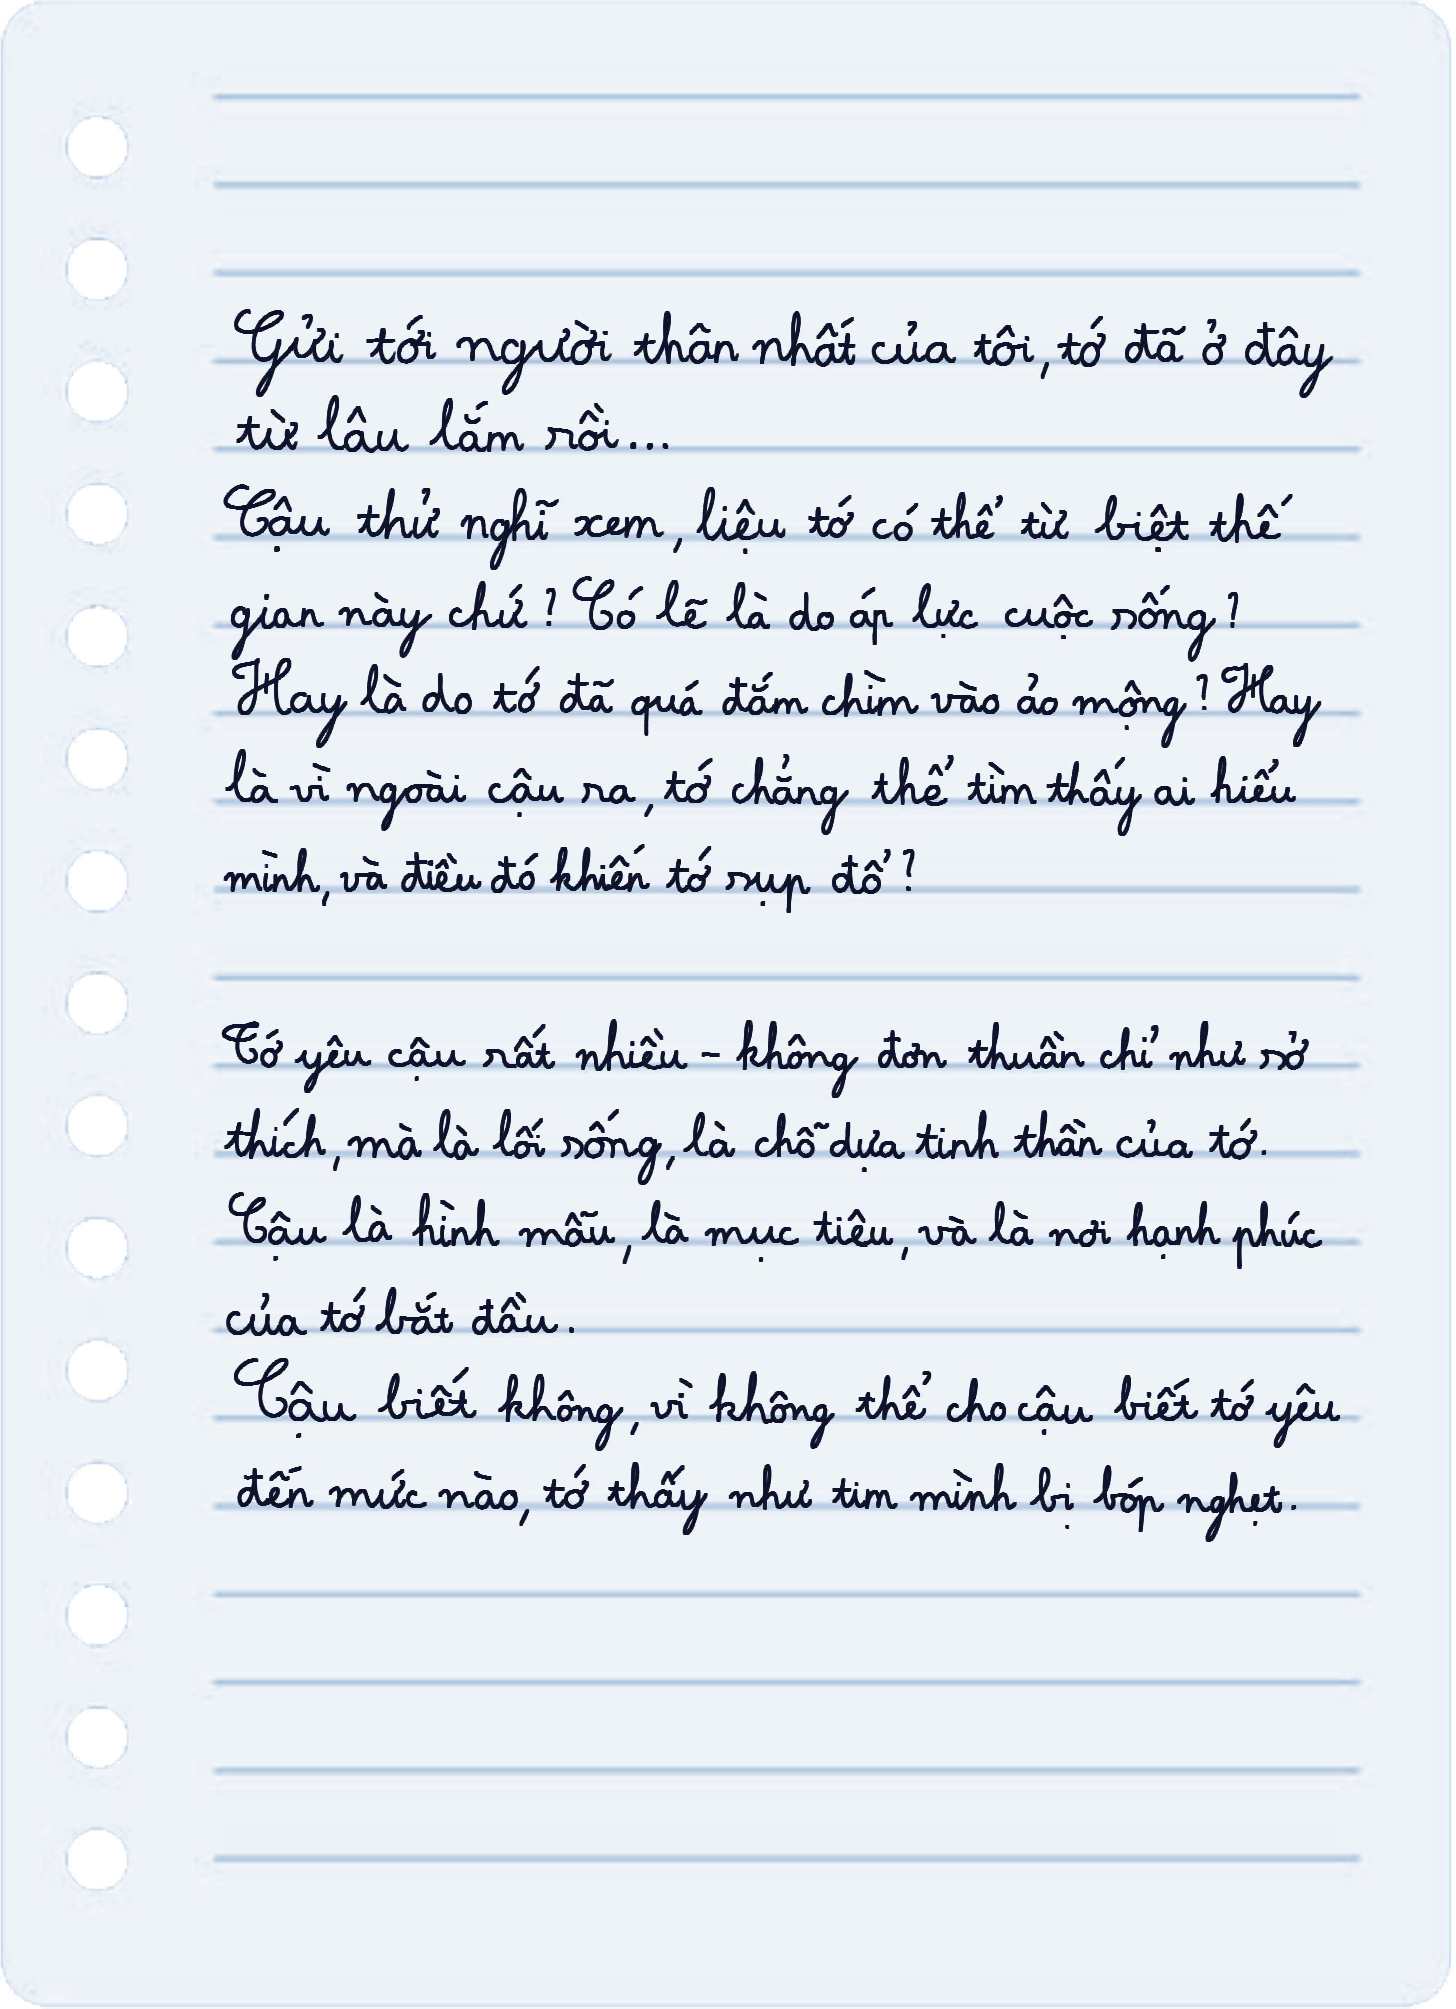 Gửi tới người thân nhất của tôi, tớ đã ở đây
từ lâu lắm rồi...
Cậu thử nghĩ xem, liệu tớ có thể từ biệt thế
gian này chứ? Có lẽ là do áp lực cuộc sống?
Hay là do tớ đã quá đắm chìm vào ảo mộng? Hay
là vì ngoài cậu ra, tớ chẳng thể tìm thấy ai hiểu
mình, và điều đó khiến tớ sụp đổ?
Tớ yêu cậu rất nhiều - không đơn thuần chỉ như sở
thích, mà là lối sống, là chỗ dựa tinh thần của tớ.
Cậu là hình mẫu, là mục tiêu, và là nơi hạnh phúc
của tớ bắt đầu.
Cậu biết không, vì không thể cho cậu biết tớ yêu
đến mức nào, tớ thấy như tim mình bị bóp nghẹt.